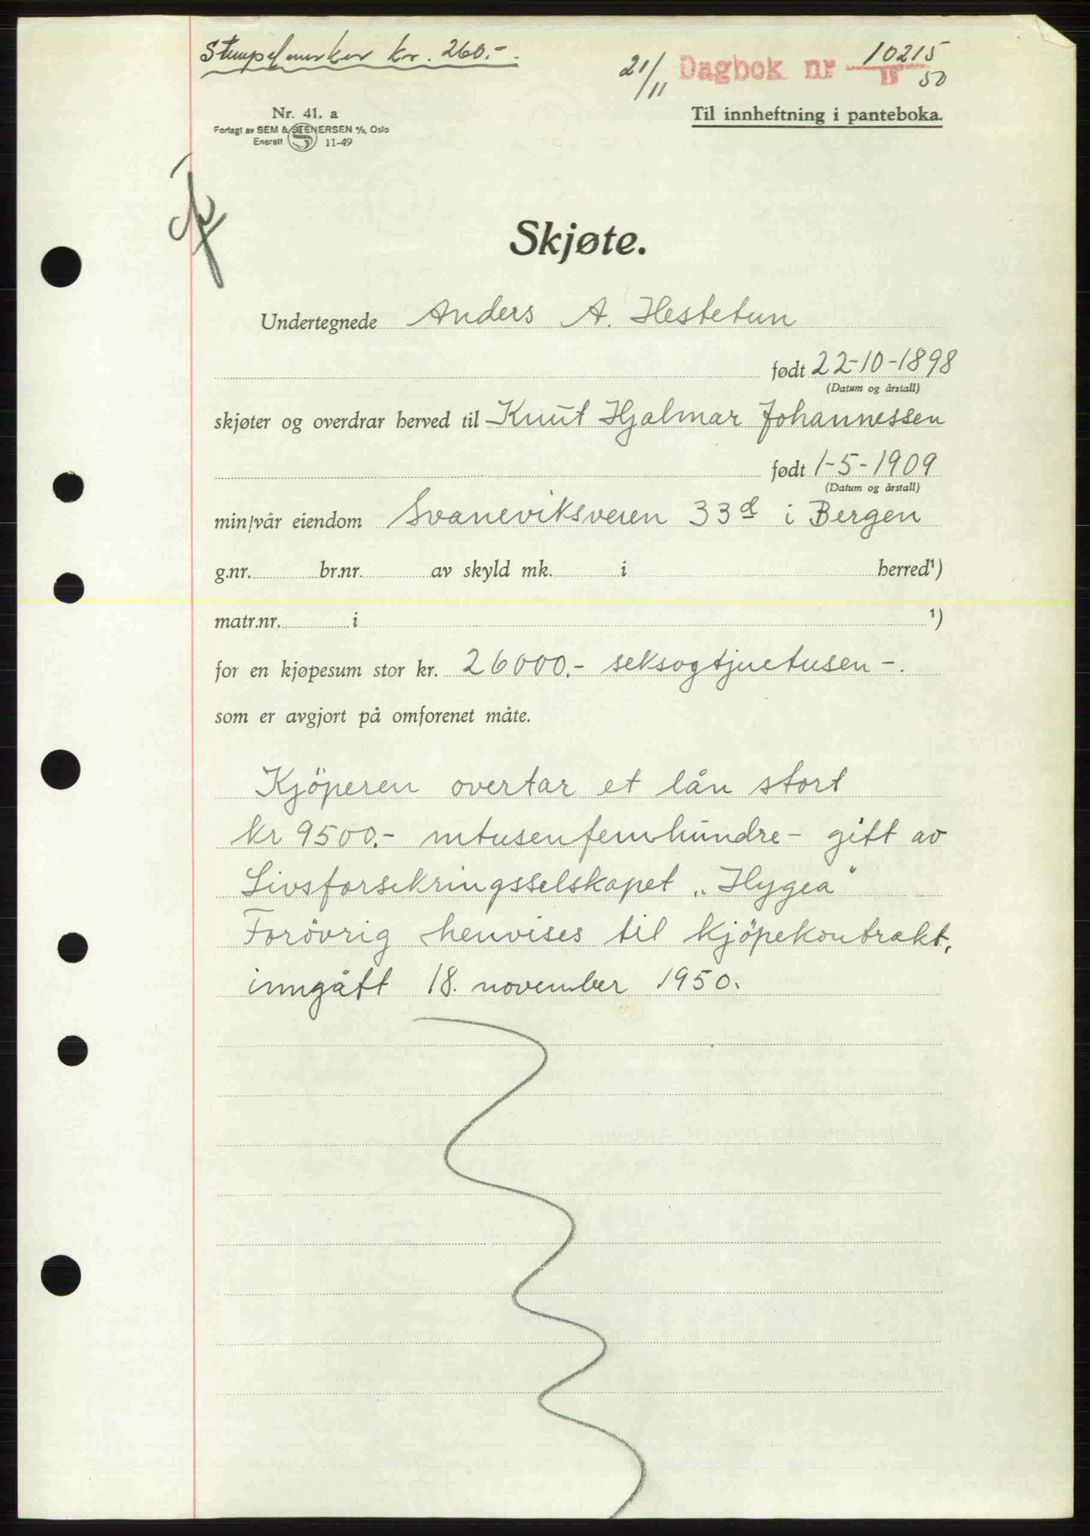 Stempelmerker kr. 260.-
21/11 Dagbok nr 10215
50
Nr. 41. a
Forlagt av SEM & STENERSEN A/S, Oslo
Enerett 11-49
Til innheftning i panteboka.
Skjøte.
Undertegnede Anders A. Hestetun
født 22-10-1898
(Datum og årstall)
skjøter og overdrar herved til Knut Hjalmar Johannessen
født 1-5-1909
(Datum og årstall)
min/vår eiendom Svaneviksveien 33d i Bergen
g.nr. br.nr. av skyld mk. i herred¹)
matr.nr. i ¹)
for en kjøpesum stor kr. 26000.- seksogtjuetusen -.
som er avgjort på omforenet måte.
Kjöperen overtar et lån stort
kr 9500.- nitusenfemhundre- gitt av
Livsforsikringsselskapet „Hygea"
Forövrig henvises til kjöpekontrakt,
inngått 18. november 1950.